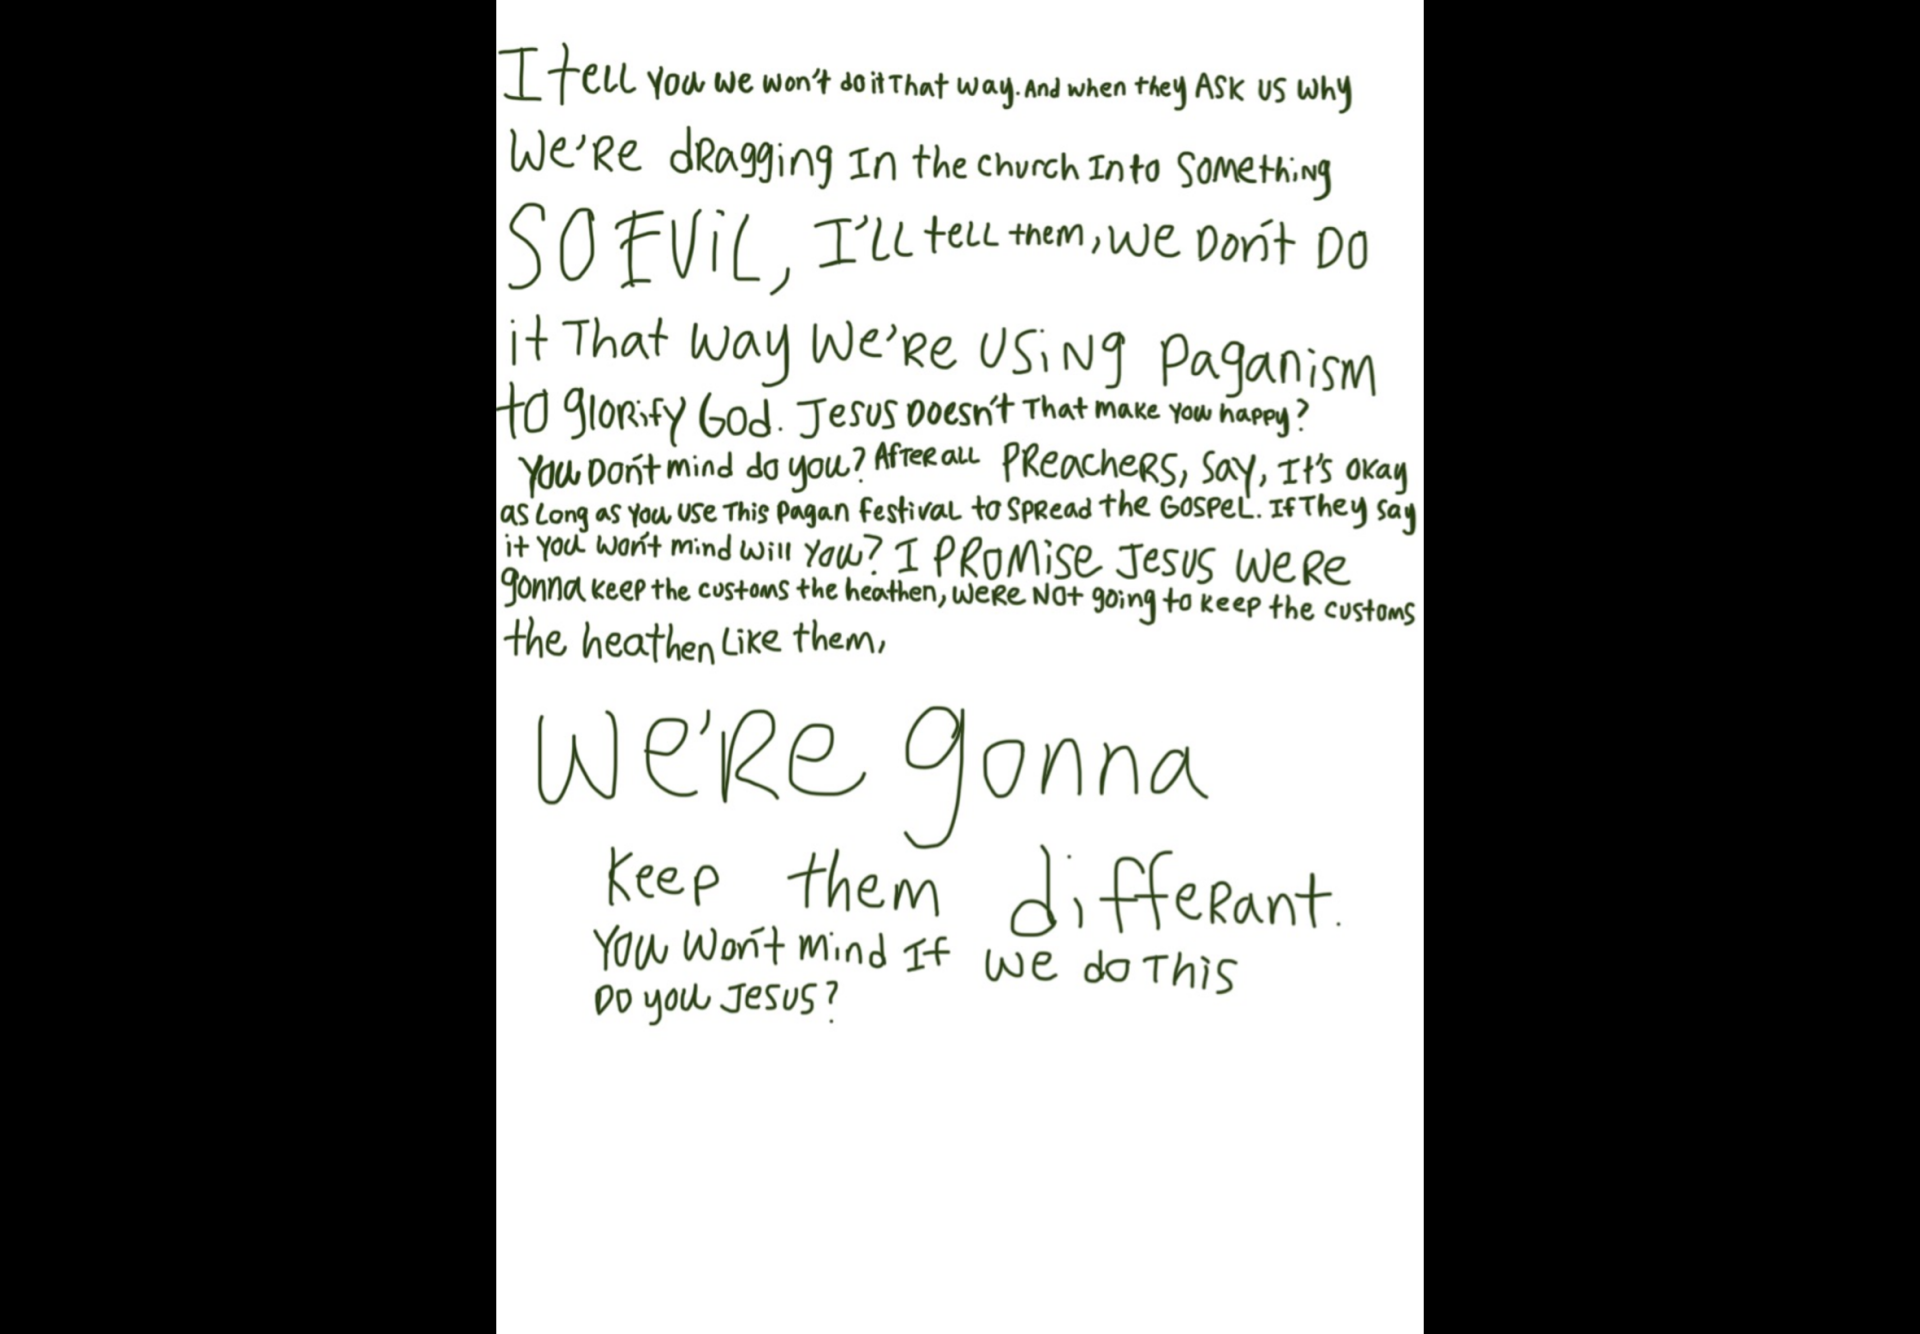 I tell you we won't do it That way. And when they ASK us why
We're dRagging In the church Into Something
SO EViL, I'LL tell them, we Don't DO
it That way We're USiNg paganism
to glorify God. Jesus Doesn't That make you happy?
You Don't mind do you? After all PReacheRS, say, It's okay
as long as you use This pagan festival to SpRead the GOSPEL. If They say
it you won't mind will you? I PROMise Jesus weRe
gonna keep the customs the heathen, weRe Not going to keep the customs
the heathen Like them,
We'Re gonna
Keep them diffeRant.
You Won't mind If we do This
Do you Jesus?